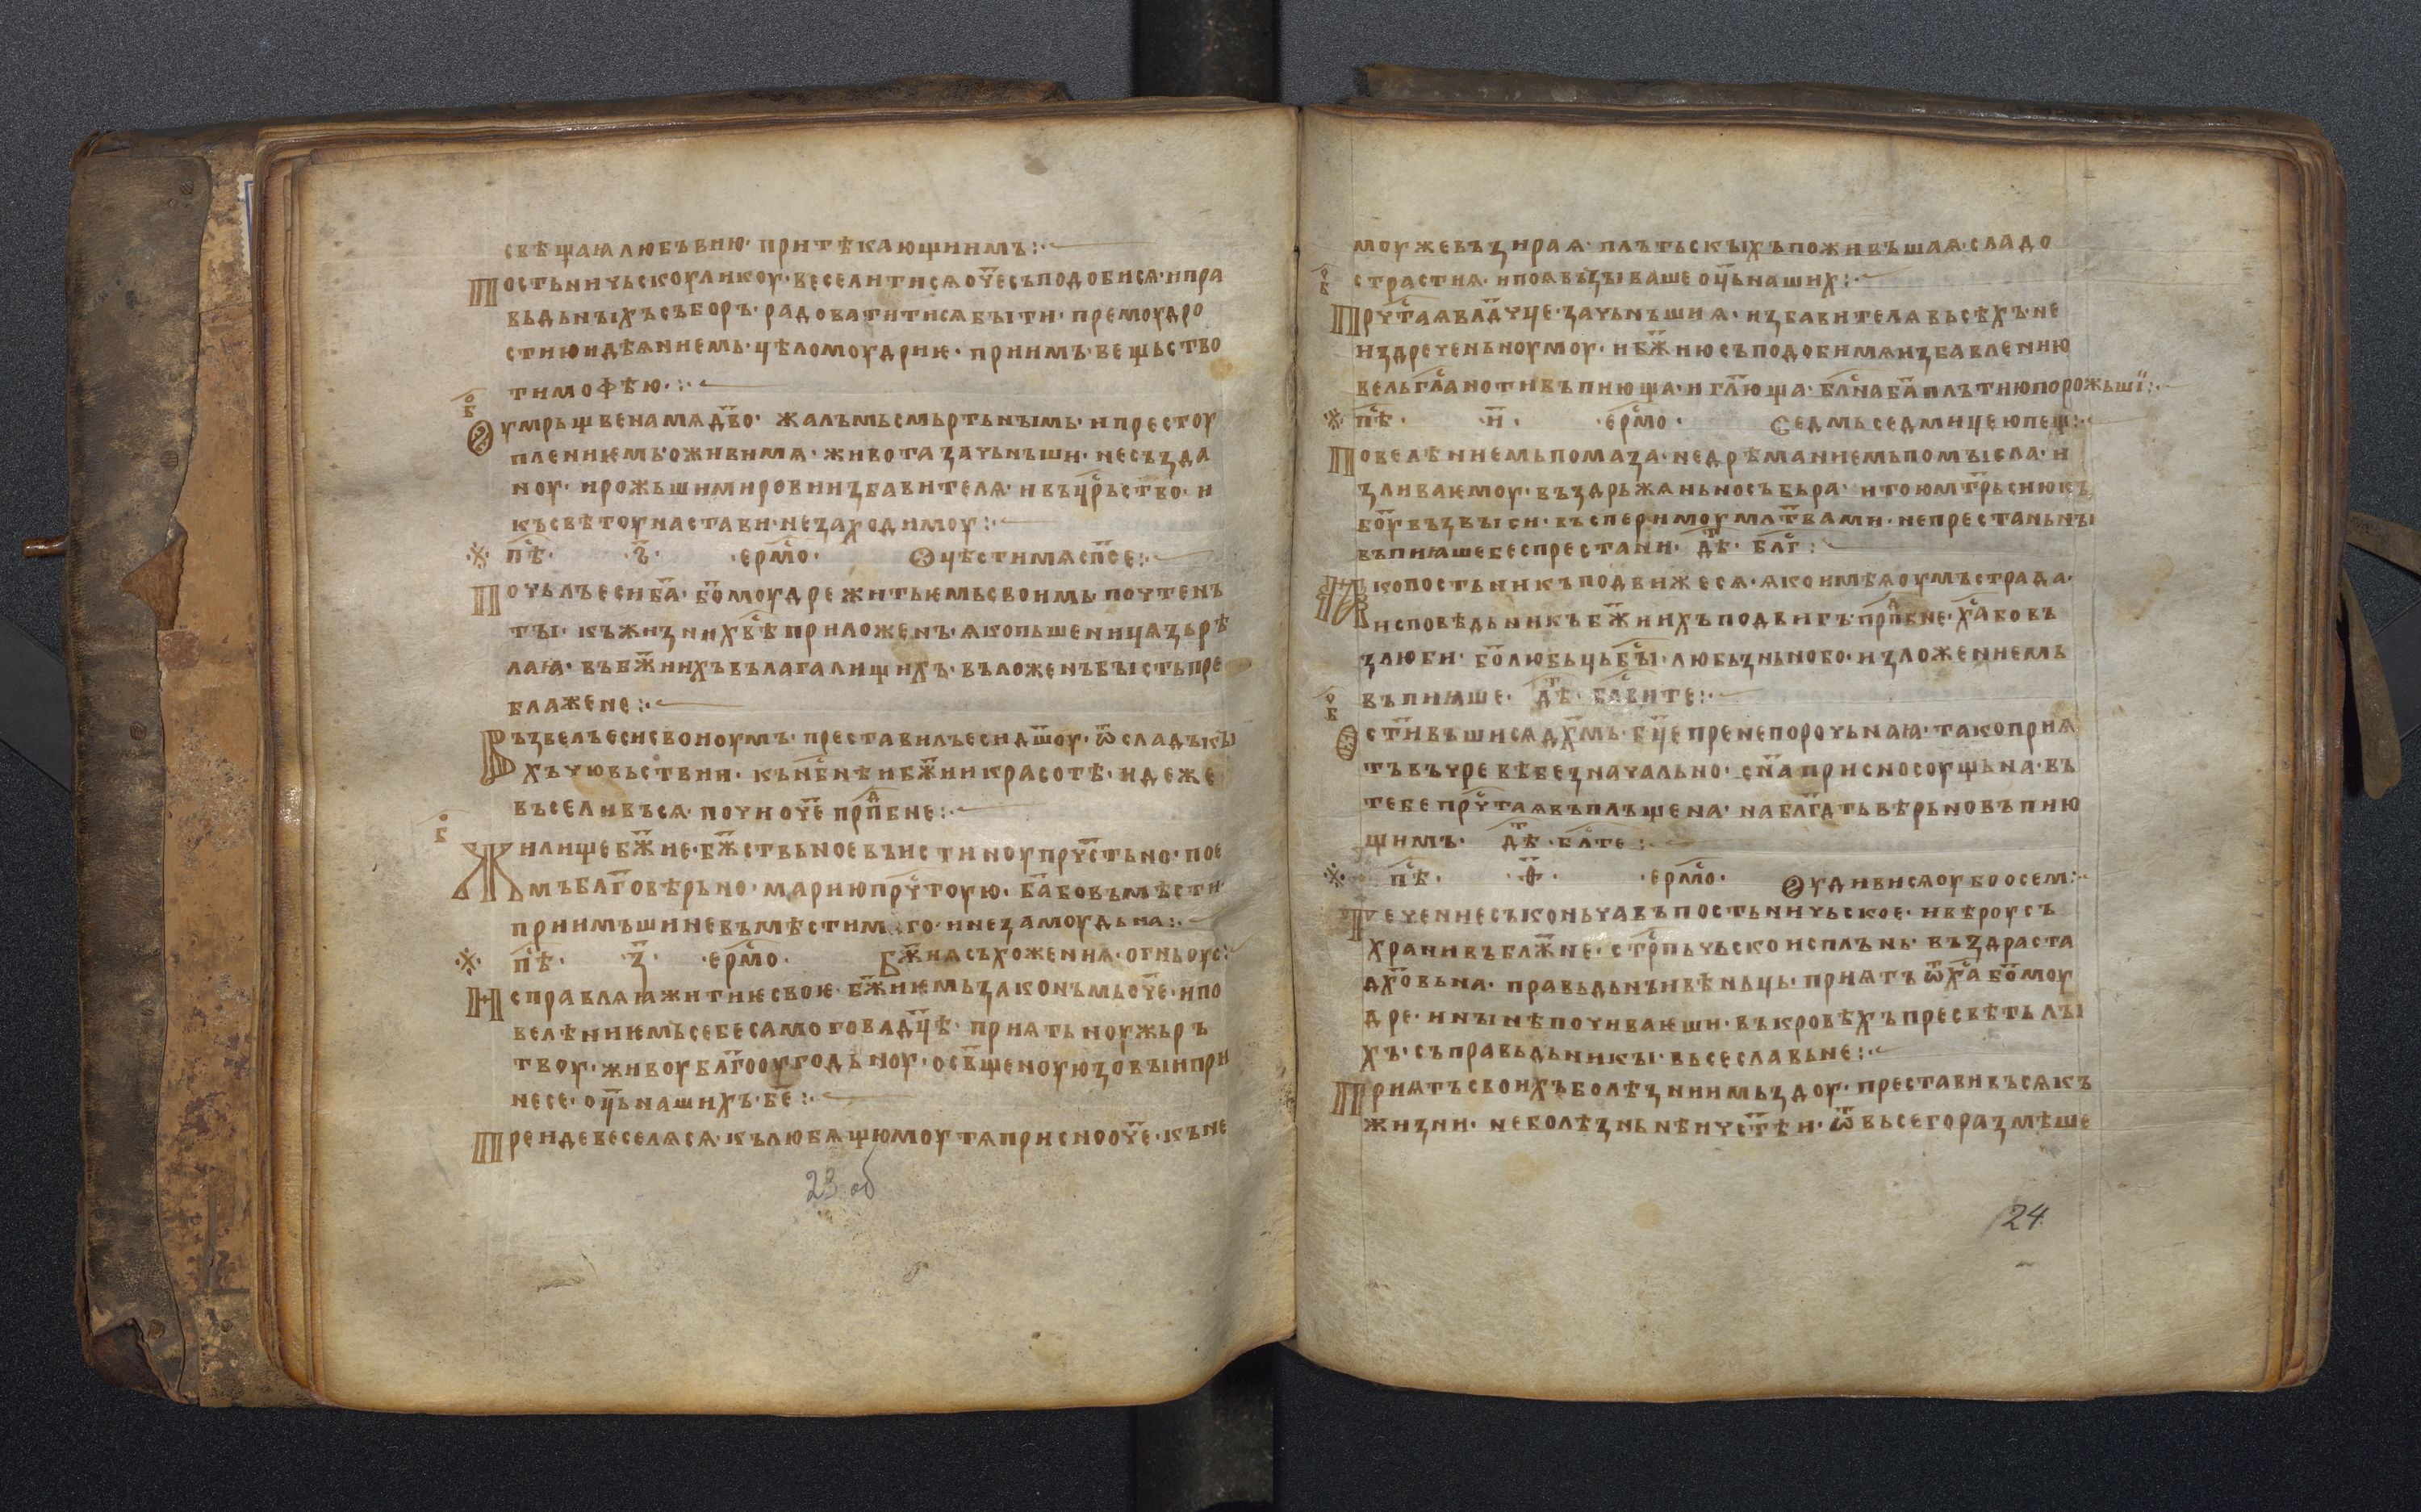 свѣщаꙗ любъвию· притѣкающиимъ:·
Постьничьскоу ликоу· веселитисѧ оч҃е съподобисѧ· и пра
вьдьныхъ съборъ· радоватитисѧ быти· премоудро
стию и дѣꙗниемь· цѣломоудриѥ· приимъ· вещьство
тимофѣю·:·
о҃б
Оумрьщвена мѧ дв҃о· жалъмь смьртьнымь· и престоу
плениѥмь· оживи мѧ· живота заченъши· несъзда
ноу· и рожьши мирови избавителѧ· и въ цр҃ьство· и
къ свѣтоу настави· незаходимоу:·
пѣ҃· ѕ҃· ерм҃о· Оцѣсти мѧ сп҃се:·
Почьлъ еси ба҃· бо҃моудре житьѥмь своимь· почтенъ
ты· къ жизни хв҃ѣ приложенъ· ꙗко пьшеницѧ зьрѣ
лаꙗ· въ бж҃иихъ вълагалищихъ· въложенъ бысть пре
блажене:·
Възвелъ еси свои оумъ· преставилъ еси дш҃оу· ѿ сладъкы
хъ чювьствии· къ нб҃нѣи бж҃ии красотѣ· идеже
въселивъсѧ· почи оч҃е прп҃дбне:·
о҃б
Жилище бж҃ие· бж҃ствьное въистиноу прч҃стьно· пое
мъ блг҃овѣрьно· марию прч҃тоую· ба҃ бо въмѣсти·
приимъши невъмѣстимаго· и неза моудьна:·
пѣ҃· з҃· ерм҃о· Бж҃иѧ съхожениѧ· огнь оус:·
Исправлѧꙗ житиѥ своѥ· бж҃иѥмь закономь оч҃е· и по
велѣниѥмь себе самого влдц҃ѣ· приꙗтьноу жьрь
твоу· живоу блг҃оогодьноу· осв҃щеноу юзовыи при
несе· оц҃ь нашихъ· бе:·
Преиде веселѧсѧ· къ любѧщюмоу тѧ присно оч҃е· къ не
23 об
моуже възираꙗ· плътьскыхъ поживъшаꙗ· сладо
страстиѧ· и поѧ възываше оц҃ь наших:·
о҃б
Прч҃таꙗ влд҃чце· заченъшиꙗ· избавителѧ вьсѣхъ· не
издреченьноумоу· и бж҃ию съподоби мѧ избавлению
вельгл҃ано ти въпиюща· и гл҃юща· бл҃на ба҃ плътию порожьшї:·
пѣ҃· и҃· ерм҃о· Седмь седмицею пещ:·
Повелѣниемь помаза· недрѣманиемь помысла· и
зливаѥмоу· въздрьжѧньно събьра· и тою мт҃рьскию къ
бо҃у възвыси· въсперимоу млт҃вами· непрестаньны
въпиꙗше беспрестани· дѣ҃т· блг҃:·
Ꙗко постьникъ подвижесѧ· ꙗко имѣꙗ оумъ страда·
исповѣдьникъ бж҃иихъ подвигъ· прп҃дбне· ха҃ бо въ
злюби· бо҃любьць бы҃· любьзньно бо· изложениемь
въпиꙗше· дѣ҃т· бл҃вите:·
о҃б
Ост҃ивъшисѧ дх҃мь· бц҃е пренепорочьнаꙗ· тако приѧ
тъ въ чревѣ безначально· сн҃а присносоущьна· въ
тебе прч҃таꙗ въплъщена· на блг҃дть вѣрьно въпию
щимъ· дѣ҃т· бл҃те:·
пѣ҃· ѳ҃· ерм҃о· Оудивисѧ оубо о сем:·
Течение съконьчавъ постьничьское· и вѣроу съ
хранивъ блж҃не· стр҃пьчьско исплънь· въздраста
дх҃овьна· правьдьныи вѣньць· приѧтъ ѿ ха҃ бо҃моу
дре· и нынѣ почиваѥши· въ кровѣхъ пресвѣтьлы
хъ· съ правьдьникы· вьсеславьне:·
Приѧтъ своихъ болѣзнии мьздоу· преставивъсѧ къ
жизни· неболѣзньнѣи чст҃ѣи· ѿ вьсего размѣше
24